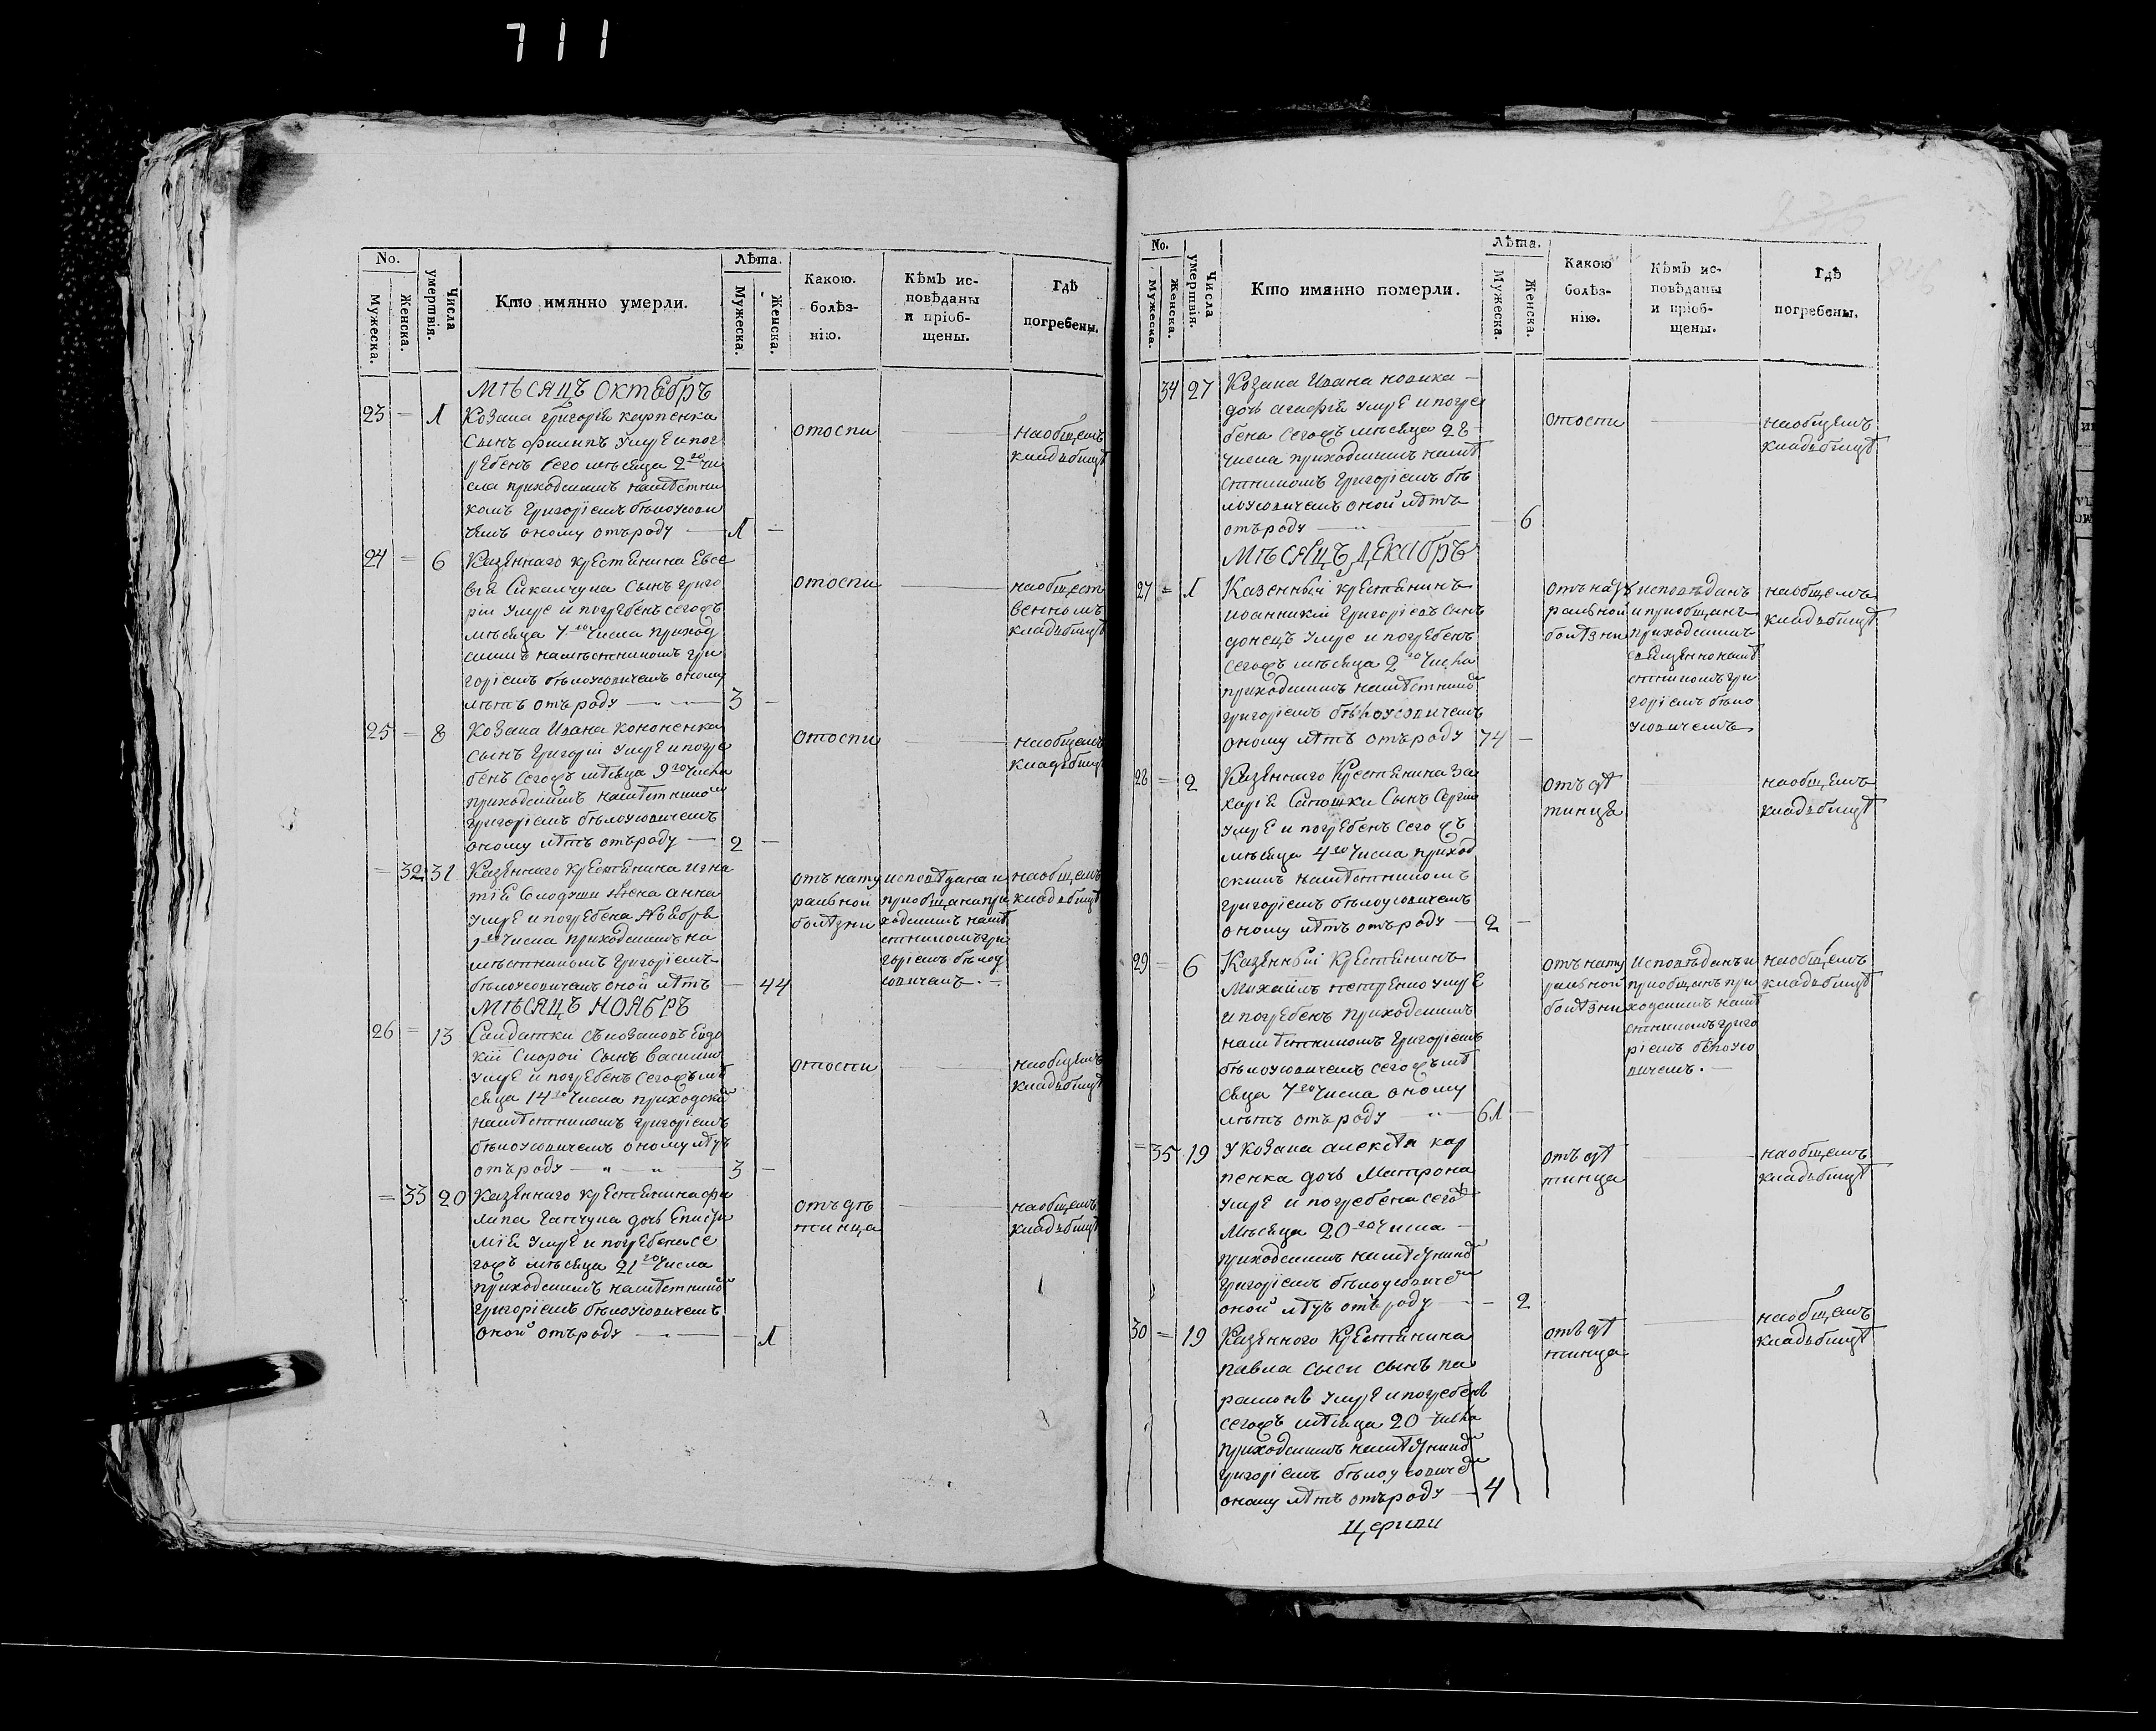 711
No.
Мужеска.
Женска.
Числа умертвія.
Кто имянно умерли.
Лѣта.
Мужеска.
Женска.
Какою.
болѣз-
нію.
Кѣмъ ис-
повѣданы
и пріоб-
щены.
Гдѣ
погребены.
МѢСЯЦЪ ОКТЕбрЪ
23 = 1 Козака Григорія карпенка
сынъ филипъ умре и пог
ребенъ сего мѣсяца 2го чи
сла приходскимъ намѣстни
комъ Григоріемъ бѣлоусови
чемъ оному отъ роду — 1 —
отоспи
на общемъ
кладъбищѣ
24 = 6 Казеннаго крестянина Евсе
вія Сикалчука сынъ григо
рій умре и погребенъ сегожъ
мѣсяца 7го числа приход
скимъ намѣстникомъ гри
горіемъ бѣлоусовичемъ оному
лѣтъ отъ роду — 3 —
отоспи
на общест
венномъ
кладъбищѣ
25 = 8 Козака Ивана кононенка
сынъ Григорій умре и погре
бенъ сегожъ мѣсяца 9го числа
приходскимъ намѣстником
григоріемъ бѣлоусовичемъ
оному лѣтъ отъ роду — 2 —
отоспи
на общемъ
кладъбищѣ
= 32 31 Казеннаго крестянина игна
тія жена анна
умре и погребена Ноября
1го числа приходскимъ на
мѣстникомъ Григоріемъ
бѣлоусовичемъ оной лѣтъ — 44
отъ нату
ралной
болѣзни
исповѣдана и
приобщана при
ходскимъ намѣ
стникомъ гри
горіемъ бѣлоу
совичемъ.
на общемъ
кладъбищѣ
МѢСЯЦЪ НОЯБРЪ
26 = 13 Салдатки Евдо
кіи сынъ василій
умре и погребенъ сегожъ мѣ
сяца 14го числа приходским
намѣстникомъ григоріемъ
бѣлоусовичемъ оному лѣтъ
отъ роду — " — " — 3 —
отоспи
на общемъ
кладъбищѣ
= 33 20 Казеннаго крестянина фи
липа Ганчука дочь Еписти
мія умре и погребена се
гожъ мѣсяца 21го числа
приходскимъ намѣстником
григоріемъ бѣлоусовичемъ
оной отъ роду — 1
отъ дѣ
тинца
на общемъ
кладъбищѣ
No.
Мужеска.
Женска.
Числа умертвія.
Кто имянно померли.
Лѣта.
Мужеска.
Женска.
Какою
болѣз-
нію.
Кѣмъ ис-
повѣданы
и пріоб-
щены.
Гдѣ
погребены.
34 27 Козака Ивана новика —
дочь агафія умре и погре
бена сегожъ мѣсяца 28
числа приходскимъ намѣ
стникомъ григоріемъ бѣ
лоусовичемъ оной лѣтъ
отъ роду — 6
отоспи
на общемъ
кладъбищѣ
МѢСЯЦЪ ДЕКАбрЪ
27 = 1 Казенный крестянинъ
иоанникій Григоріевъ сынъ
донецъ умре и погребенъ
сегожъ мѣсяца 2го числа
приходскимъ намѣстником
григоріемъ бѣлоусовичемъ
оному лѣтъ отъ роду 74 —
отъ нату
ралной
болѣзни
исповѣданъ
и приобщанъ
приходскимъ
священнонамѣ
стникомъ гри
горіемъ бѣло
усовичемъ
на общемъ
кладъбищѣ
28 = 2 Казеннаго Крестянина За
харія сынъ Сергій
умре и погребенъ сегожъ
мѣсяца 4го числа приход
скимъ намѣстникомъ
григоріемъ бѣлоусовичемъ
оному лѣтъ отъ роду — 2 —
отъ дѣ
тинца
на общемъ
кладъбищѣ
29 = 6 Казенный Крестянинъ
Михаилъ петренко умре
и погребенъ приходскимъ
намѣстникомъ Григоріемъ
бѣлоусовичемъ сегожъ мѣ
сяца 7го числа оному
лѣтъ отъ роду — " — 61 —
отъ нату
ралной
болѣзни
Исповѣданъ и
приобщанъ при
ходскимъ намѣ
стникомъ григо
ріемъ бѣлоусо
вичемъ. —
на общемъ
кладъбищѣ
= 35 19 У козака алексѣя кар
пенка дочь Матрона
умре и погребена сегожъ
мѣсяца 20го числа —
приходскимъ намѣстником
григоріемъ бѣлоусовичем
оной лѣтъ отъ роду — 2
отъ дѣ
тинца
на общемъ
кладъбищѣ
30 = 19 Казенного Крестянина
павла сыси сынъ па
рамонъ умре и погребенъ
сегожъ мѣсяца 20 числа
приходскимъ намѣстником
григоріемъ бѣлоусовичем
оному лѣтъ отъ роду — 4
отъ дѣ
тинца
на общемъ
кладъбищѣ
Церкви